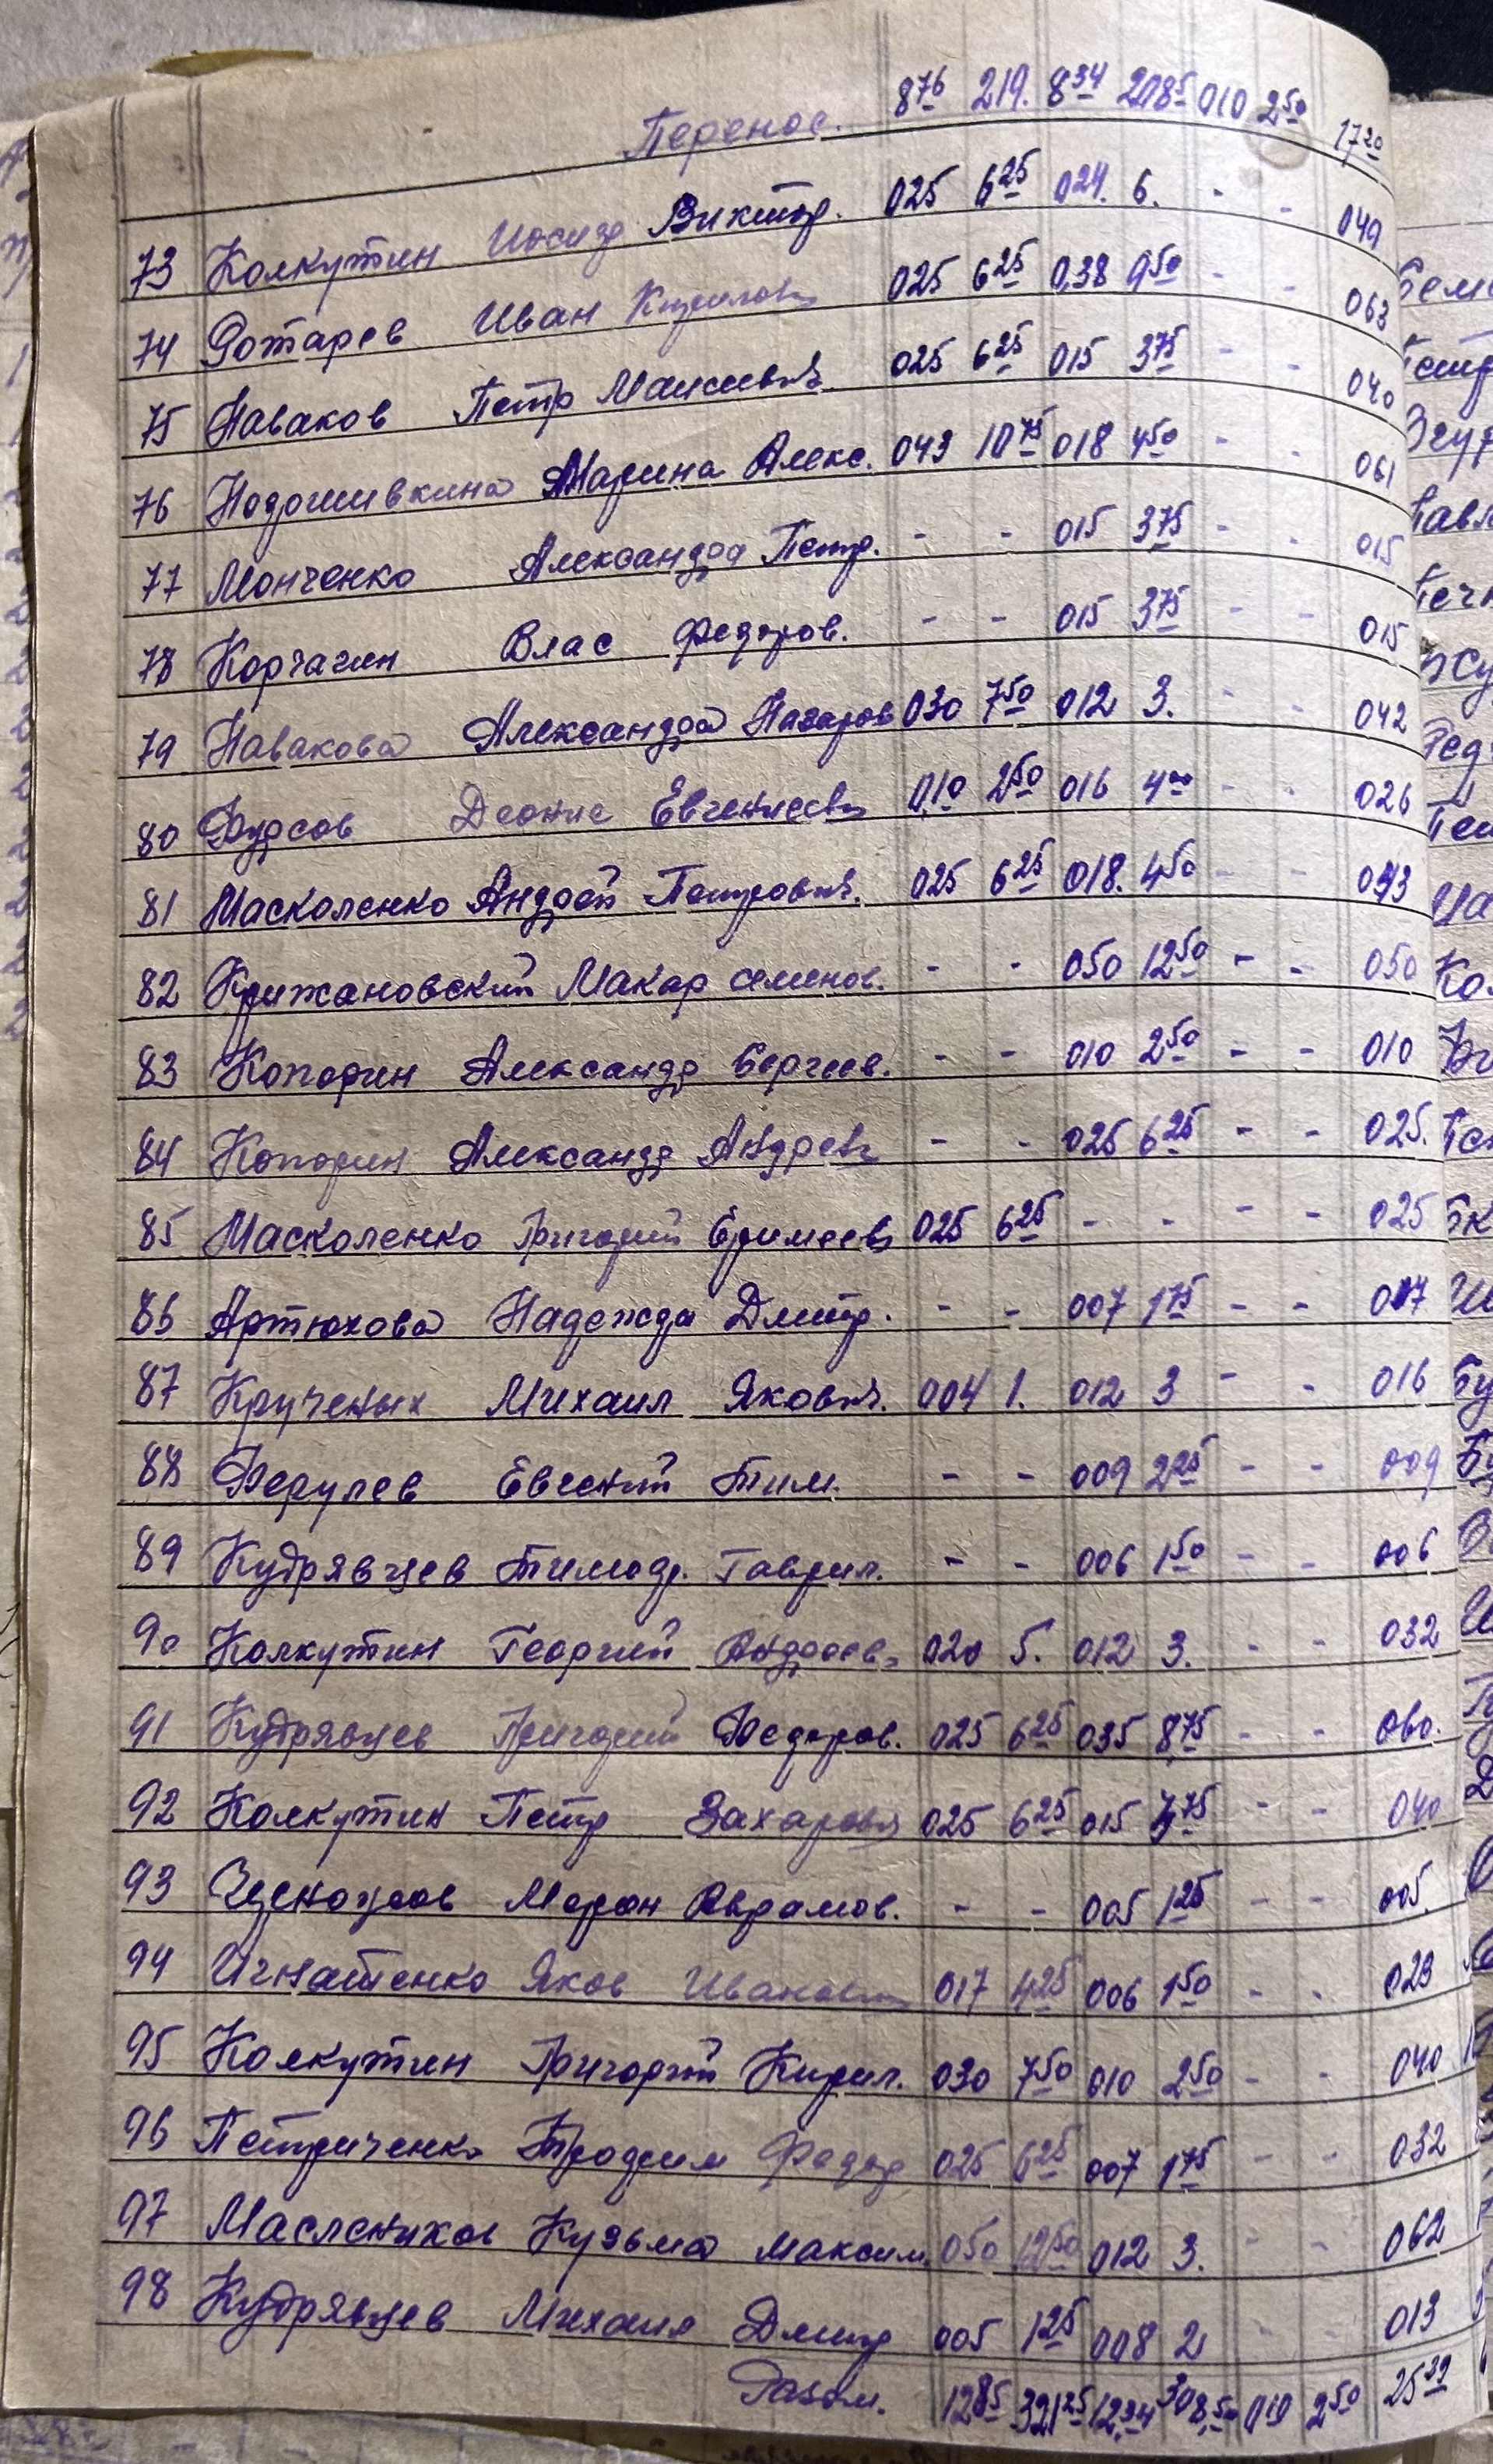 Перенос. 8 76 219. 8 34 208 5 010 2 50 17 20
73 Колкутин Иосиф Виктор. 025 6 25 024. 6. - - 049
74 Ротарев Иван Кирилов 025 6 25 0,38 9 50 - - 063
75 Наваков Петр Моисеевич 025 6 25 015 3 75 - - 040
76 Подошивкина Марина Алекс. 043 10 75 018 4 50 - - 061
77 Монченко Александра Петр. - - 015 3 75 - - 015
78 Корчагин Влас Федоров. - - 015 3 75 - - 015
79 Навакова Александра Назаров 030 7 50 012 3. - - 042
80 Фурсов Денис Евгениев 0,10 2 50 016 4 00 - - 026
81 Масколенко Андрей Петрович. 025 6 25 018. 4 50 - - 043
82 Крижановский Макар Семенов. - - 050 12 50 - - 050
83 Копорин Александр Сергеев. - - 010 2 50 - - 010
84 Копорин Александр Андреев - - 025 6 25 - - 025.
85 Масколенко Григорий Еримеев 025 6 25 - - - - 025
86 Артюхова Надежда Дмитр. - - 007 1 75 - - 007
87 Крученых Михаил Якович. 004 1. 012 3 - - 016
88 Ферулев Евгений Тим. - - 009 2 25 - - 009
89 Кудрявцев Тимоф. Гаврил. - - 006 1 50 - - 006
90 Колкутин Георгий Андреев. 020 5. 012 3. - - 032
91 Кудрявцев Григорий Федоров. 025 6 25 035 8,75 - - 060.
92 Колкутин Петр Захаров 025 6 25 015 3 75 - - 040
93 Мерон Аврамов. - - 005 1 25 - - 005.
94 Игнатенко Яков Иванович 017 4 25 006 1 50 - - 023
95 Колкутин Григорий Кирил. 030 7 50 010 2 50 - - 040
96 Петриченко Трофим Федор 025 6 25 007 1 75 - - 032
97 Маслеников Кузьма Максим. 050 12 50 012 3. - - 062
98 Кудрявцев Михаил Дмитр 005 1 25 008 2 - - 013
12 85 321 25 12 34 308,50 010 2 50 25 29